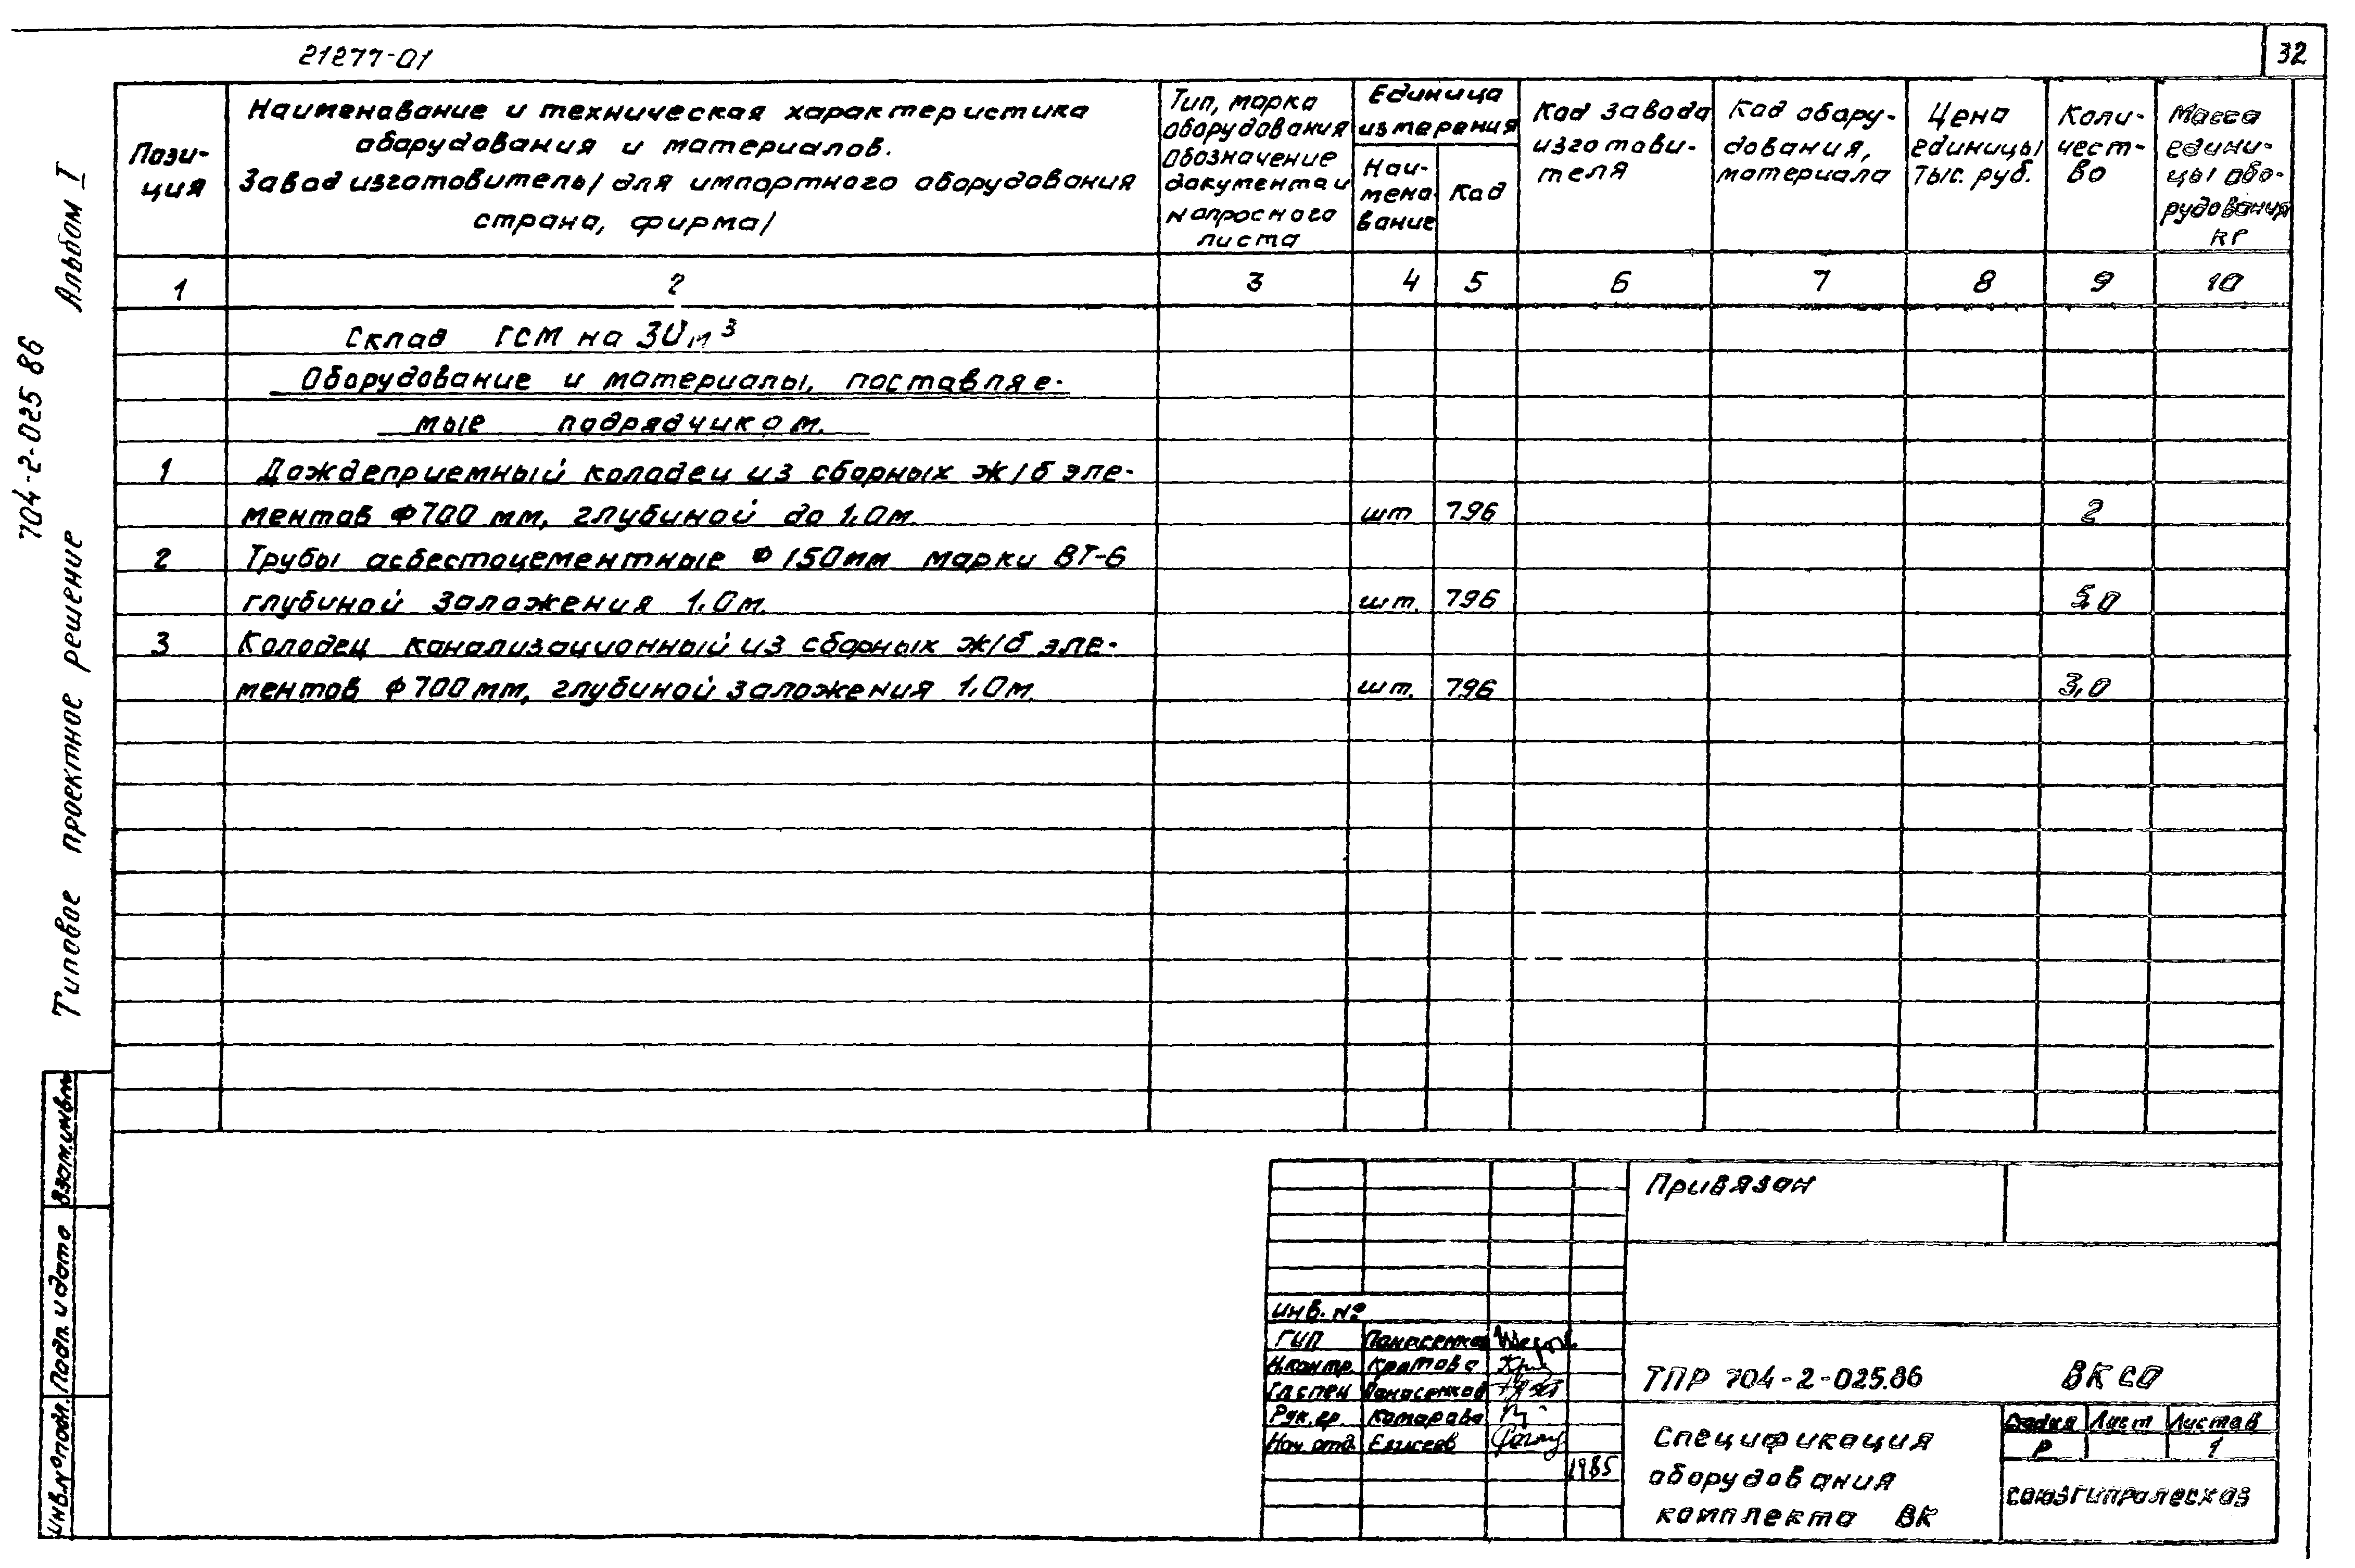 21277-01
32
Пози-
ция
Наименование и техническая характеристика
оборудования и материалов.
Завод изготовитель/для импортного оборудования
страна, фирма/
Тип, марка
оборудования
Обозначение
документа и
№ опросного
листа
Единица
измерения
Наи-
мено
вание
Код
Код завода
изготови-
теля
Код обору-
дования,
материала
Цена
единицы
Тыс. руб.
Коли-
чест-
во
Масса
едини-
цы обо-
рудования
кг
1 2 3 4 5 6 7 8 9 10
Склад ГСМ на 30м³
Оборудование и материалы, поставляе-
мые подрядчиком.
1 Дождеприемный колодец из сборных ж/б эле-
ментов Ф700 мм, глубиной до 1,0м. шт 796 2
2 Трубы асбестоцементные Ф150мм марки ВТ-6
глубиной заложения 1.0м. шт. 796 5,0
3 Колодец канализационный из сборных ж/б эле-
ментов Ф700мм, глубиной заложения 1.0м. шт. 796 3,0
Типовое проектное решение 704-2-025 86 Альбом I
Взам.инв.№
Подп. и дата
Инв.№подл.
Привязан
Инв. №
ГИП Панасенков
Н.контр. Кротова
Гл.спец Панасенков
Рук. гр. Комарова
Нач. отд. Елисеев
1985
ТПР 704-2-025.86 ВК СО
Спецификация
оборудования
комплекта ВК
Стадия Лист Листов
Р 1
Союзгипролесхоз